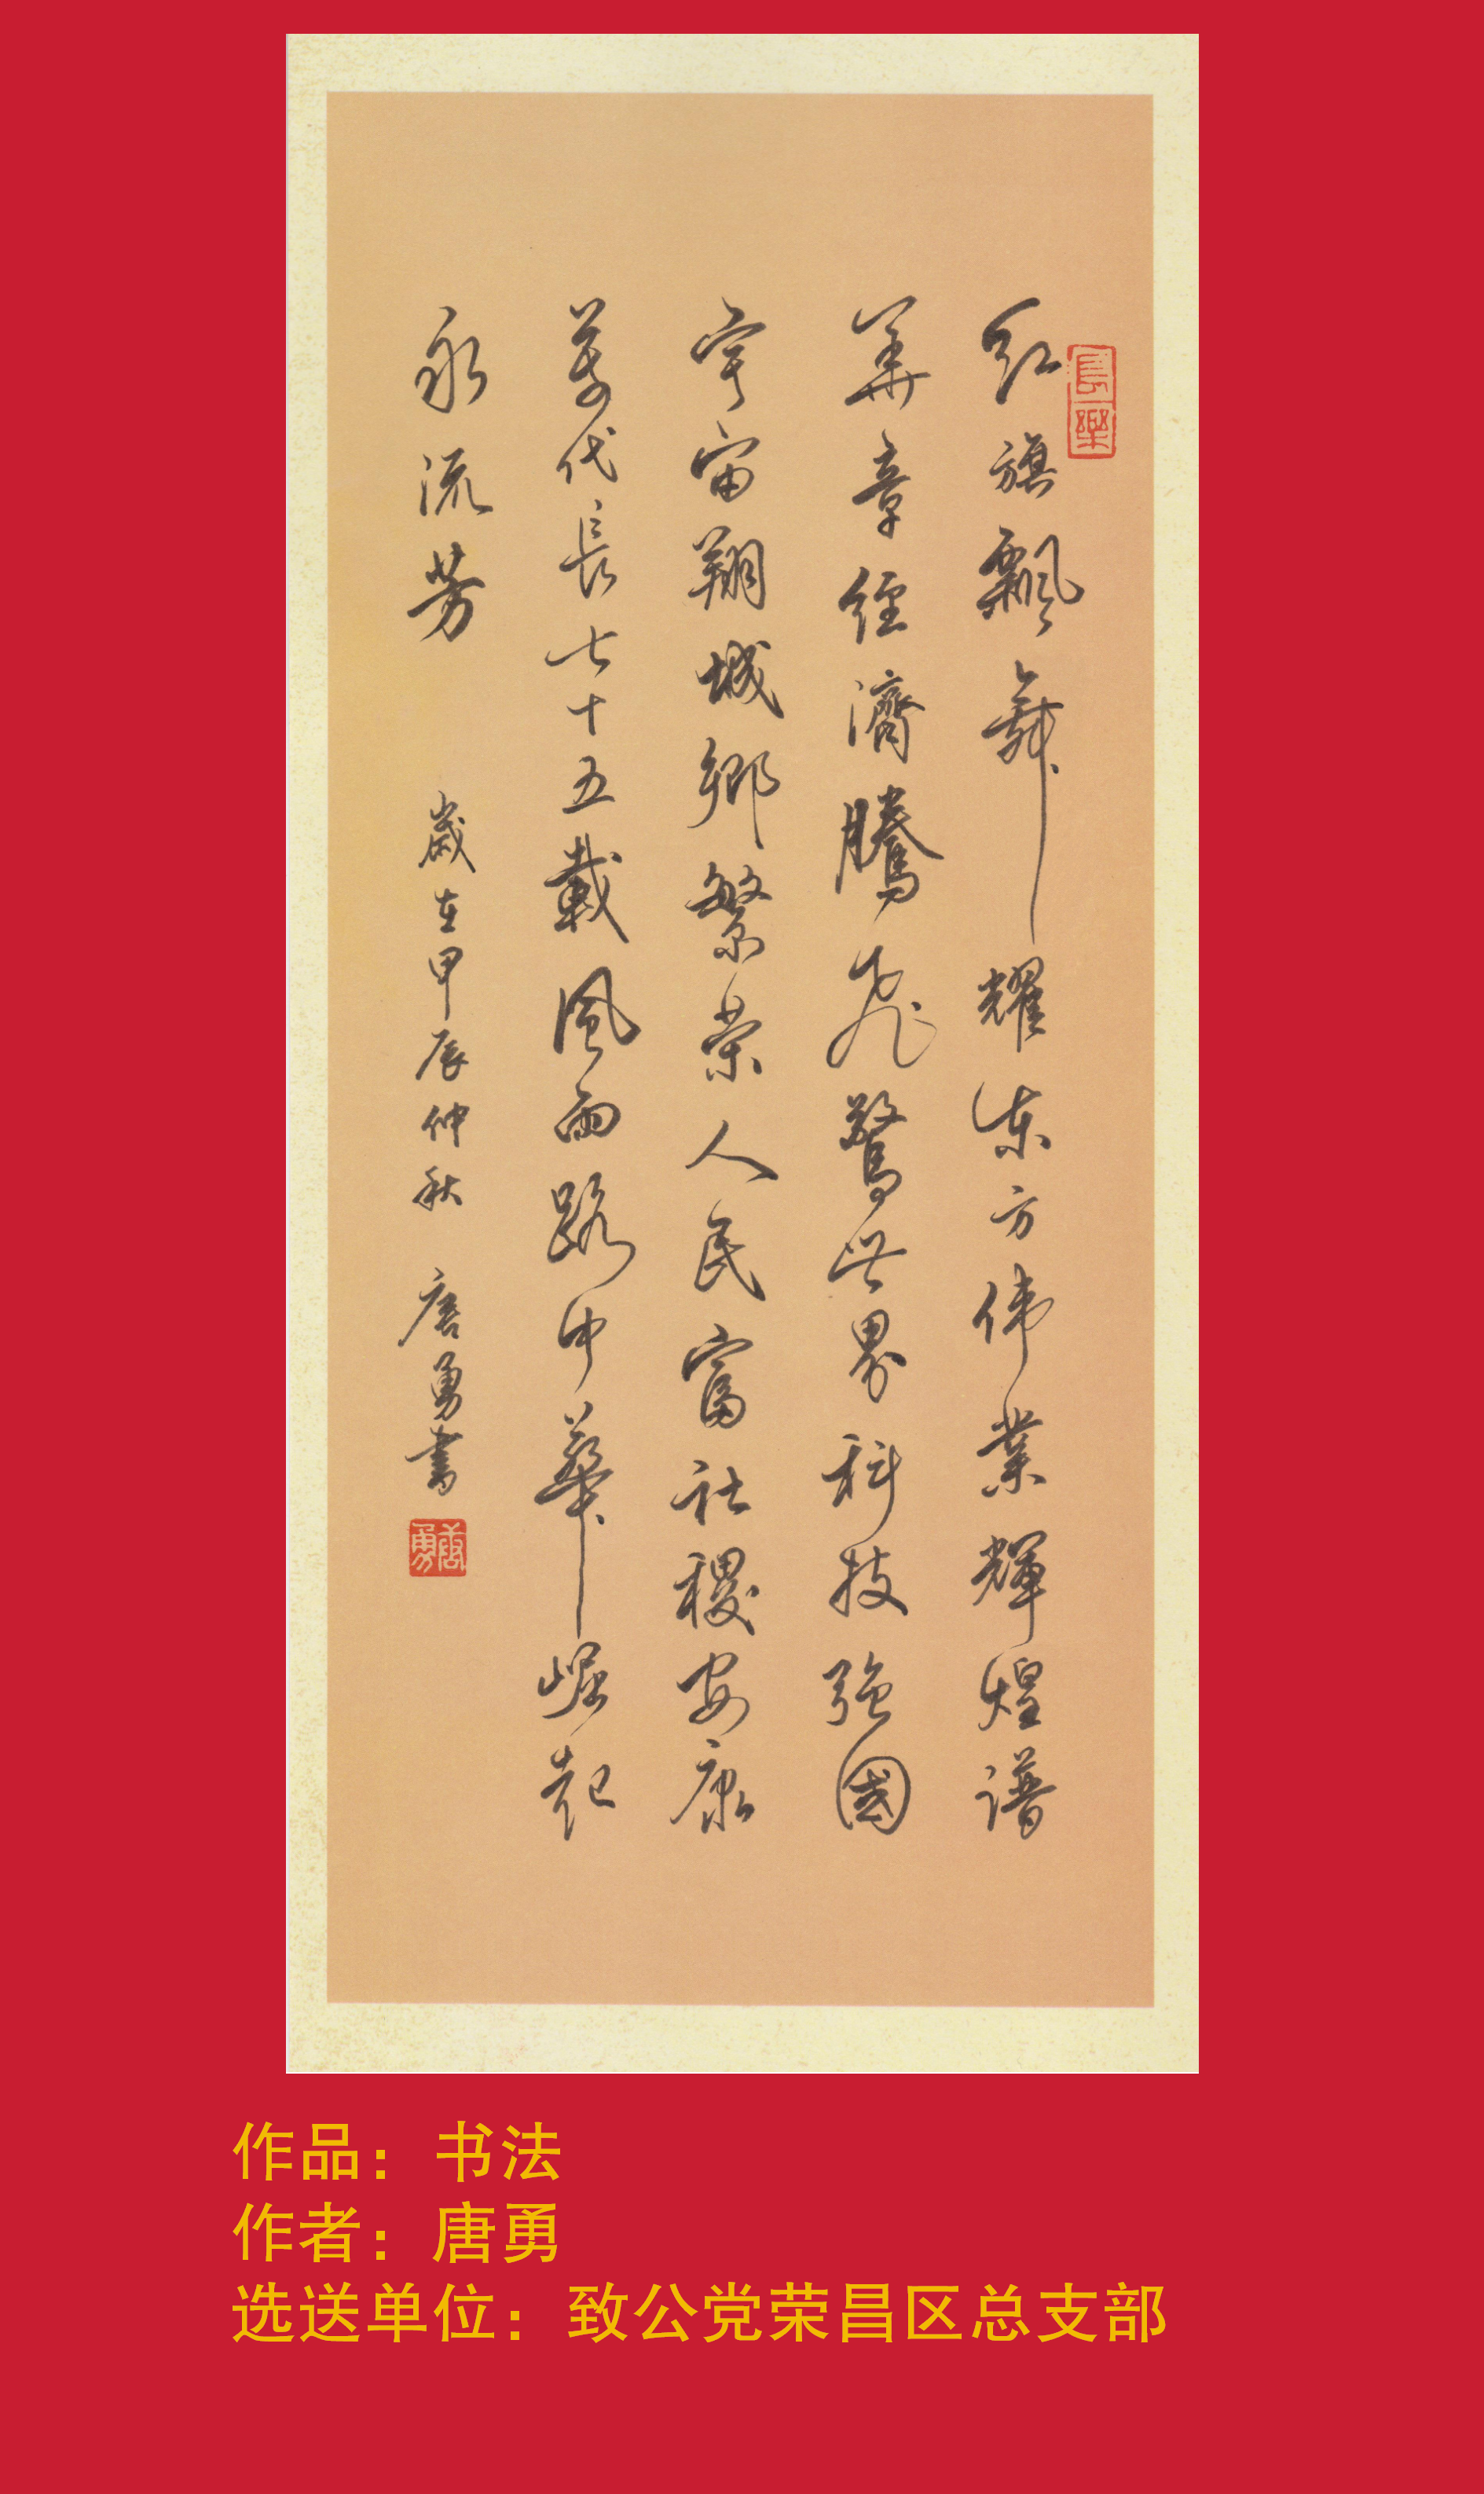 红旗飄舞耀东方伟業輝煌谱
華章经濟騰飛驚世界科技强國
宇宙翔城鄉繁荣人民富社稷安康
萬代長七十五載風雨路中華崛起
永流芳
歲在甲辰仲秋 唐勇書
唐勇
長樂
作品：书法
作者：唐勇
选送单位：致公党荣昌区总支部